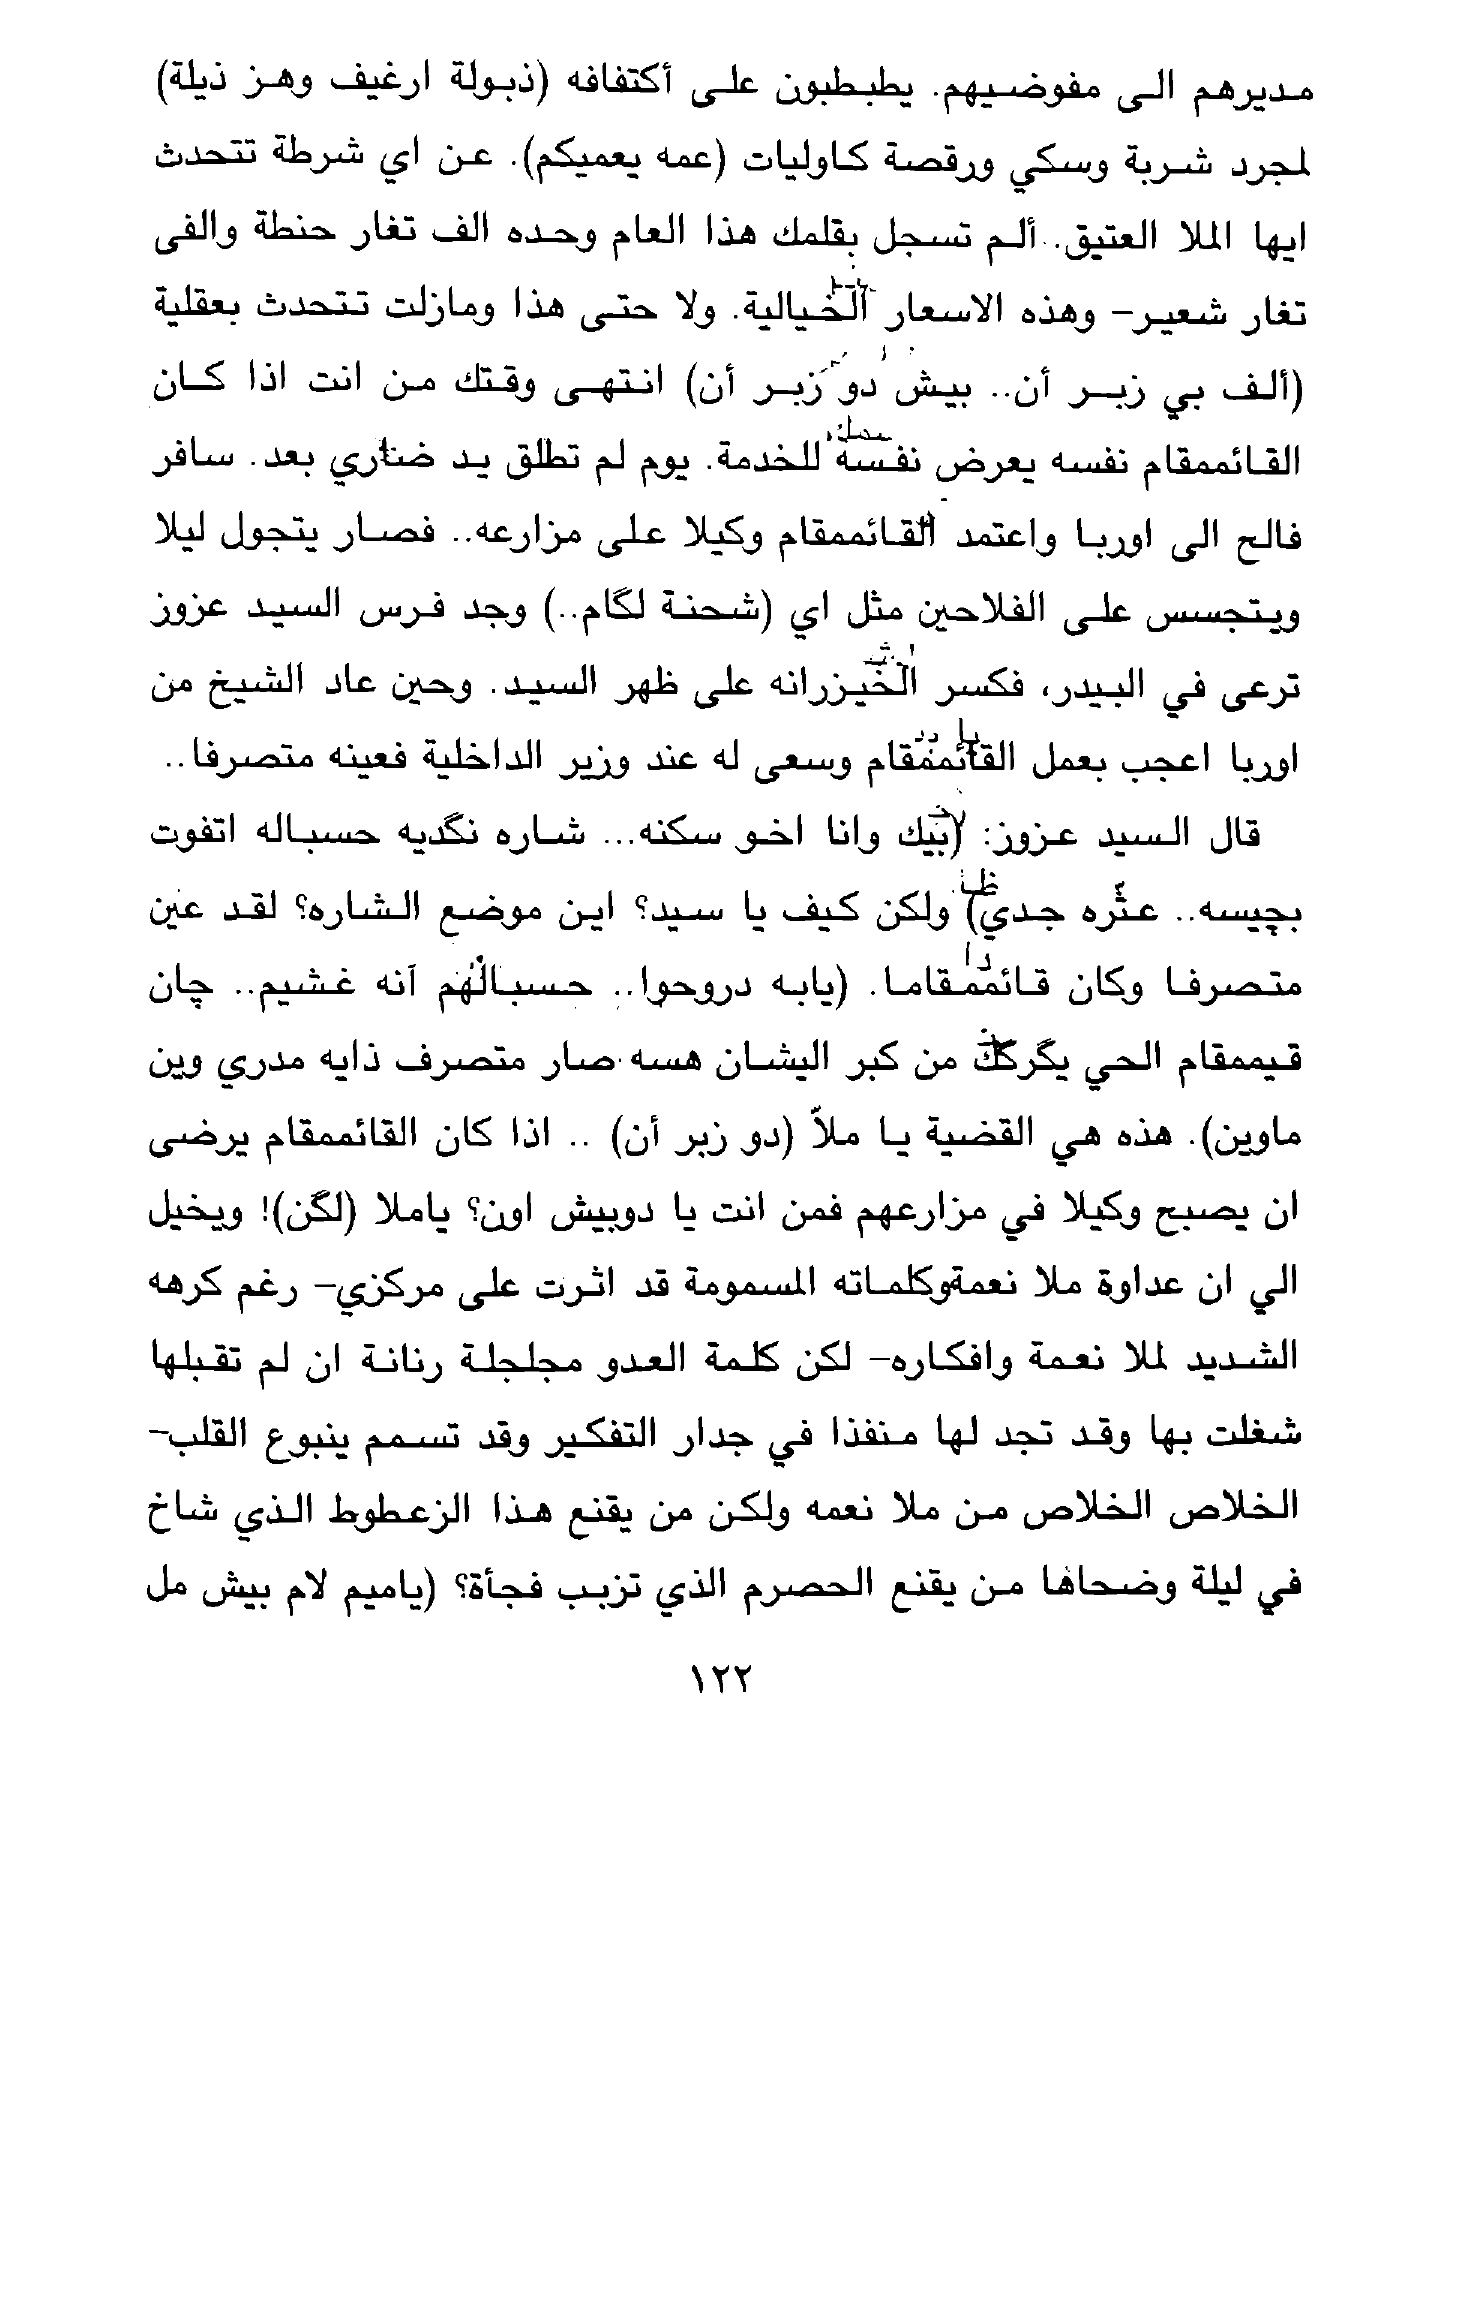 مديرهم الى مفوضيهم. يطبطبون على أكتفافه (ذبولة ارغيف وهز ذيلة)
لمجرد شربة وسكي ورقصة كاوليات (عمه يعميكم). عن اي شرطة تتحدث
ايها الملا العتيق.. ألم تسجل بقلمك هذا العام وحده الف تغار حنطة والفى
تغار شعير- وهذه الاسعار الخيالية. ولا حتى هذا ومازلت تتحدث بعقلية
(ألف بي زبر أن.. بيش دو زبر أن) انتهى وقتك من انت اذا كان
القائممقام نفسه يعرض نفسه للخدمة. يوم لم تطلق يد ضاري بعد. سافر
فالح الى اوربا واعتمد القائممقام وكيلا على مزارعه.. فصار يتجول ليلا
ويتجسس على الفلاحين مثل اي (شحنة لگام..) وجد فرس السيد عزوز
ترعى في البيدر، فكسر الخيزرانه على ظهر السيد. وحين عاد الشيخ من
اوربا اعجب بعمل القائممقام وسعى له عند وزير الداخلية فعينه متصرفا..
قال السيد عزوز: وانا اخو سكنه... شاره نگديه حسباله اتفوت
بچيسه.. عثّره جدي) ولكن كيف يا سيد؟ اين موضع الشاره؟ لقد عين
متصرفا وكان قائممقاما. (يابه دروحوا.. حسبالهم آنه غشيم.. چان
قيممقام الحي يگرك من كبر اليشان هسه صار متصرف ذايه مدري وين
ماوين). هذه هي القضية يا ملاّ (دو زبر أن) .. اذا كان القائممقام يرضى
ان يصبح وكيلا في مزارعهم فمن انت يا دوبيش اون؟ ياملا (لگن)! ويخيل
الي ان عداوة ملا نعمةوكلماته المسمومة قد اثرت على مركزي- رغم كرهه
الشديد لملا نعمة وافكاره- لكن كلمة العدو مجلجلة رنانة ان لم تقبلها
شغلت بها وقد تجد لها منفذا في جدار التفكير وقد تسمم ينبوع القلب-
الخلاص الخلاص من ملا نعمه ولكن من يقنع هذا الزعطوط الذي شاخ
في ليلة وضحاها من يقنع الحصرم الذي تزبب فجأة؟ (ياميم لام بيش مل
١٢٢